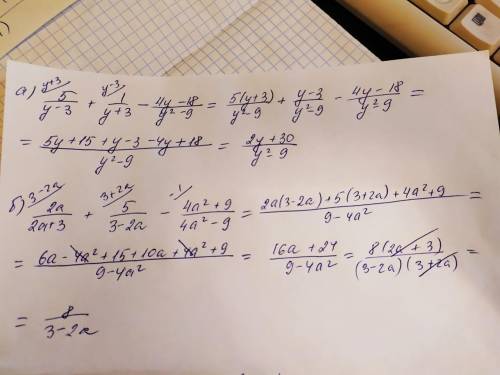 а) 5/(y-3) ^(y+3) + 1/(y+3) ^(y-3) - (4y-18)/(y²-9) = 5(y+3)/(y²-9) + (y-3)/(y²-9) - (4y-18)/(y²-9) =
= (5y+15+y-3-4y+18)/(y²-9) = (2y+30)/(y²-9)
б) 2a/(2a+3) ^(3-2a) + 5/(3-2a) ^(3+2a) - (4a²+9)/(4a²-9) ^(-1) = (2a(3-2a)+5(3+2a)+4a²+9)/(9-4a²) =
= (6a-4a²+15+10a+4a²+9)/(9-4a²) = (16a+24)/(9-4a²) = 8(2a+3)/((3-2a)(3+2a)) =
= 8/(3-2a)